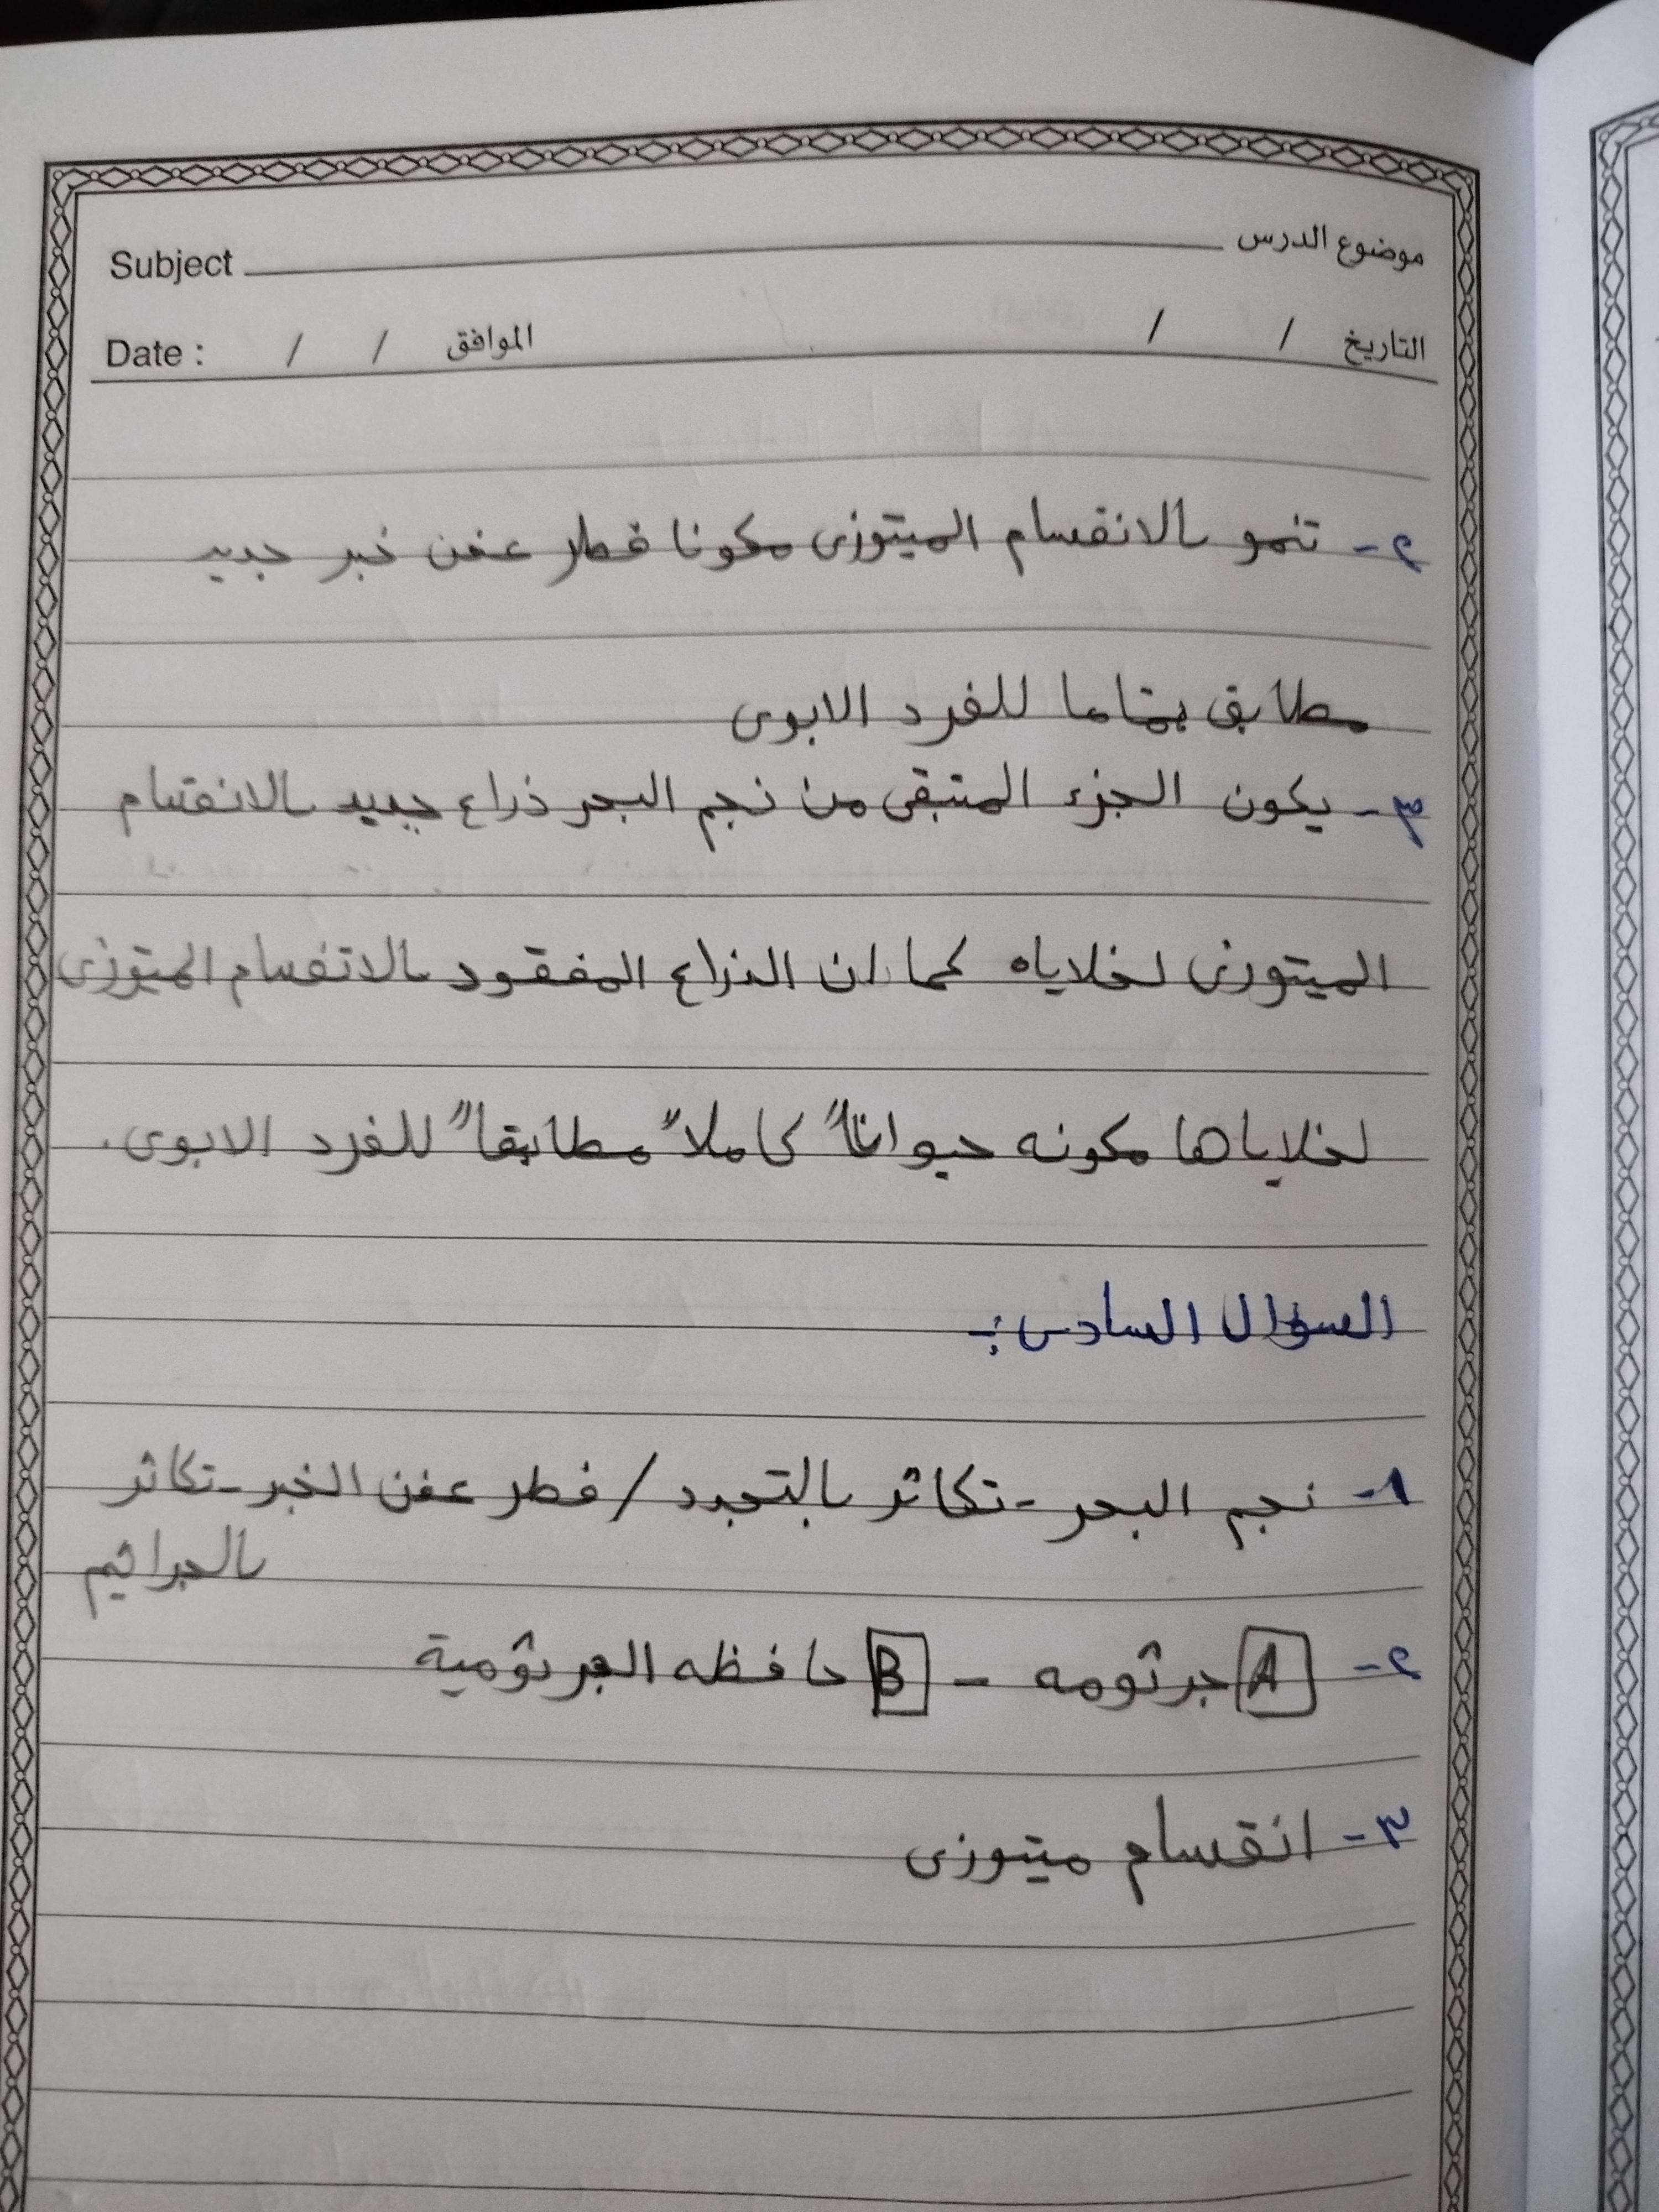 موضوع الدرس Subject
التاريخ / / الموافق / / Date :
٢- تنمو بالانقسام الميتوزى مكونا فطر عفن خبز جديد
مطابق تماما للفرد الابوى
٣- يكون الجزء المتبقى من نجم البحر ذراع جديد بالانقسام
الميتوزى لخلاياه كما ان الذراع المفقود بالانقسام الميتوزى
لخلاياها مكونه حيواناً كاملاً مطابقاً للفرد الابوى.
السؤال السادس:-
١- نجم البحر - تكاثر بالتجدد / فطر عفن الخبز - تكاثر
بالجراثيم
٢- A جرثومه - B حافظه الجرثومية
٣- انقسام ميتوزى